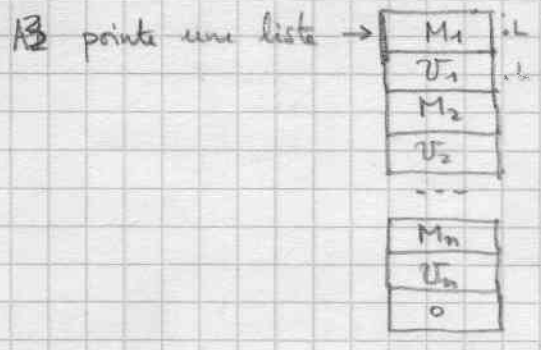 A3 pointe une liste → M1 :L
V1 :L
M2
V2
---
Mn
Vn
0